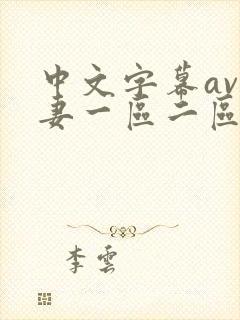 中文字幕av
妻一區二區
李雲